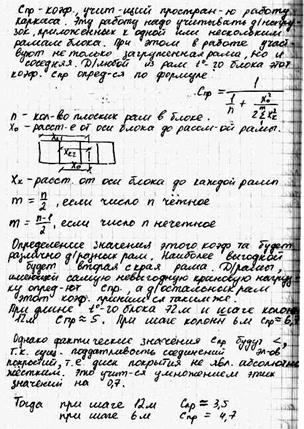 Спр - коэф., учит-щий простран-ю работу
каркаса. Эту работу надо учитывать д/нагру-
зок, приложенных к одной или нескольким
рамам блока. При этом в работе участ-
вуют не только загруженная рама, но и
соседняя. Д/любой из рам t°-го блока этот
коэф. Спр опред-ся по формуле:
Спр = 1 / (1/n + X₀²/(2∑₁ᵐXₖ²))
n - кол-во плоских рам в блоке.
X₀ - расст-е от оси блока до рассм-ой рамы.
Xₖ - расст. от оси блока до каждой рамы
m = n/2, если число n чётное
m = (n-1)/2, если число n нечетное
Определение значения этого коэф-та будет
различно д/разных рам. Наиболее выгодной
будет вторая с края рама. Д/рамы,
имеющей самую невыгодную крановую нагрузку
опред-ют Спр, а д/остальной рам
этот коэф. принимается таким же.
При длине t°-го блока 72м и шаге колонн
12м Спр ≈ 5. При шаге колонн 6м Спр =
Однако фактические значения Спр будут <,
т.к. сущ. податливость соединений эл-ов
покрытия, т.е. диск покрытия не явл. абсолютно
жестким. Это учит-ся умножением этих
значений на 0,7.
Тогда при шаге 12м Спр = 3,5
при шаге 6м Спр = 4,7